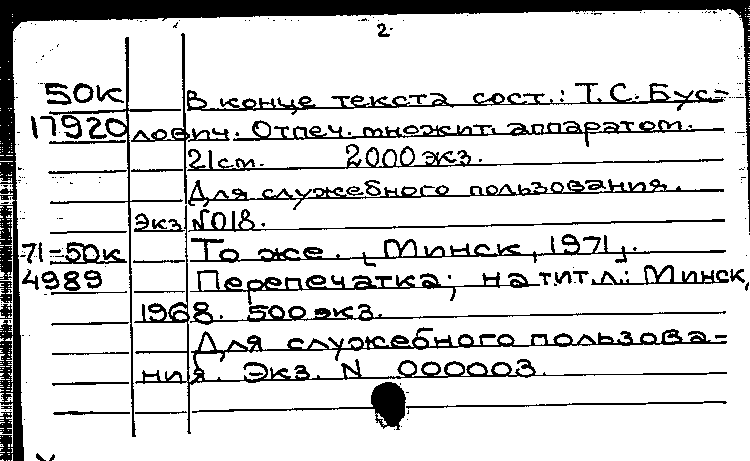 2.
50К В конце текста сост.: Т.С. Бус-
17920 лович. Отпеч. множит. аппаратом.
21 см. 2000 экз.
Для служебного пользования.
Экз №018.
71-50К То же. [Минск, 1971].
4989 Перепечатка; на тит. л.: Минск,
1968. 500 экз.
Для служебного пользова-
ния. Экз. N 000003.